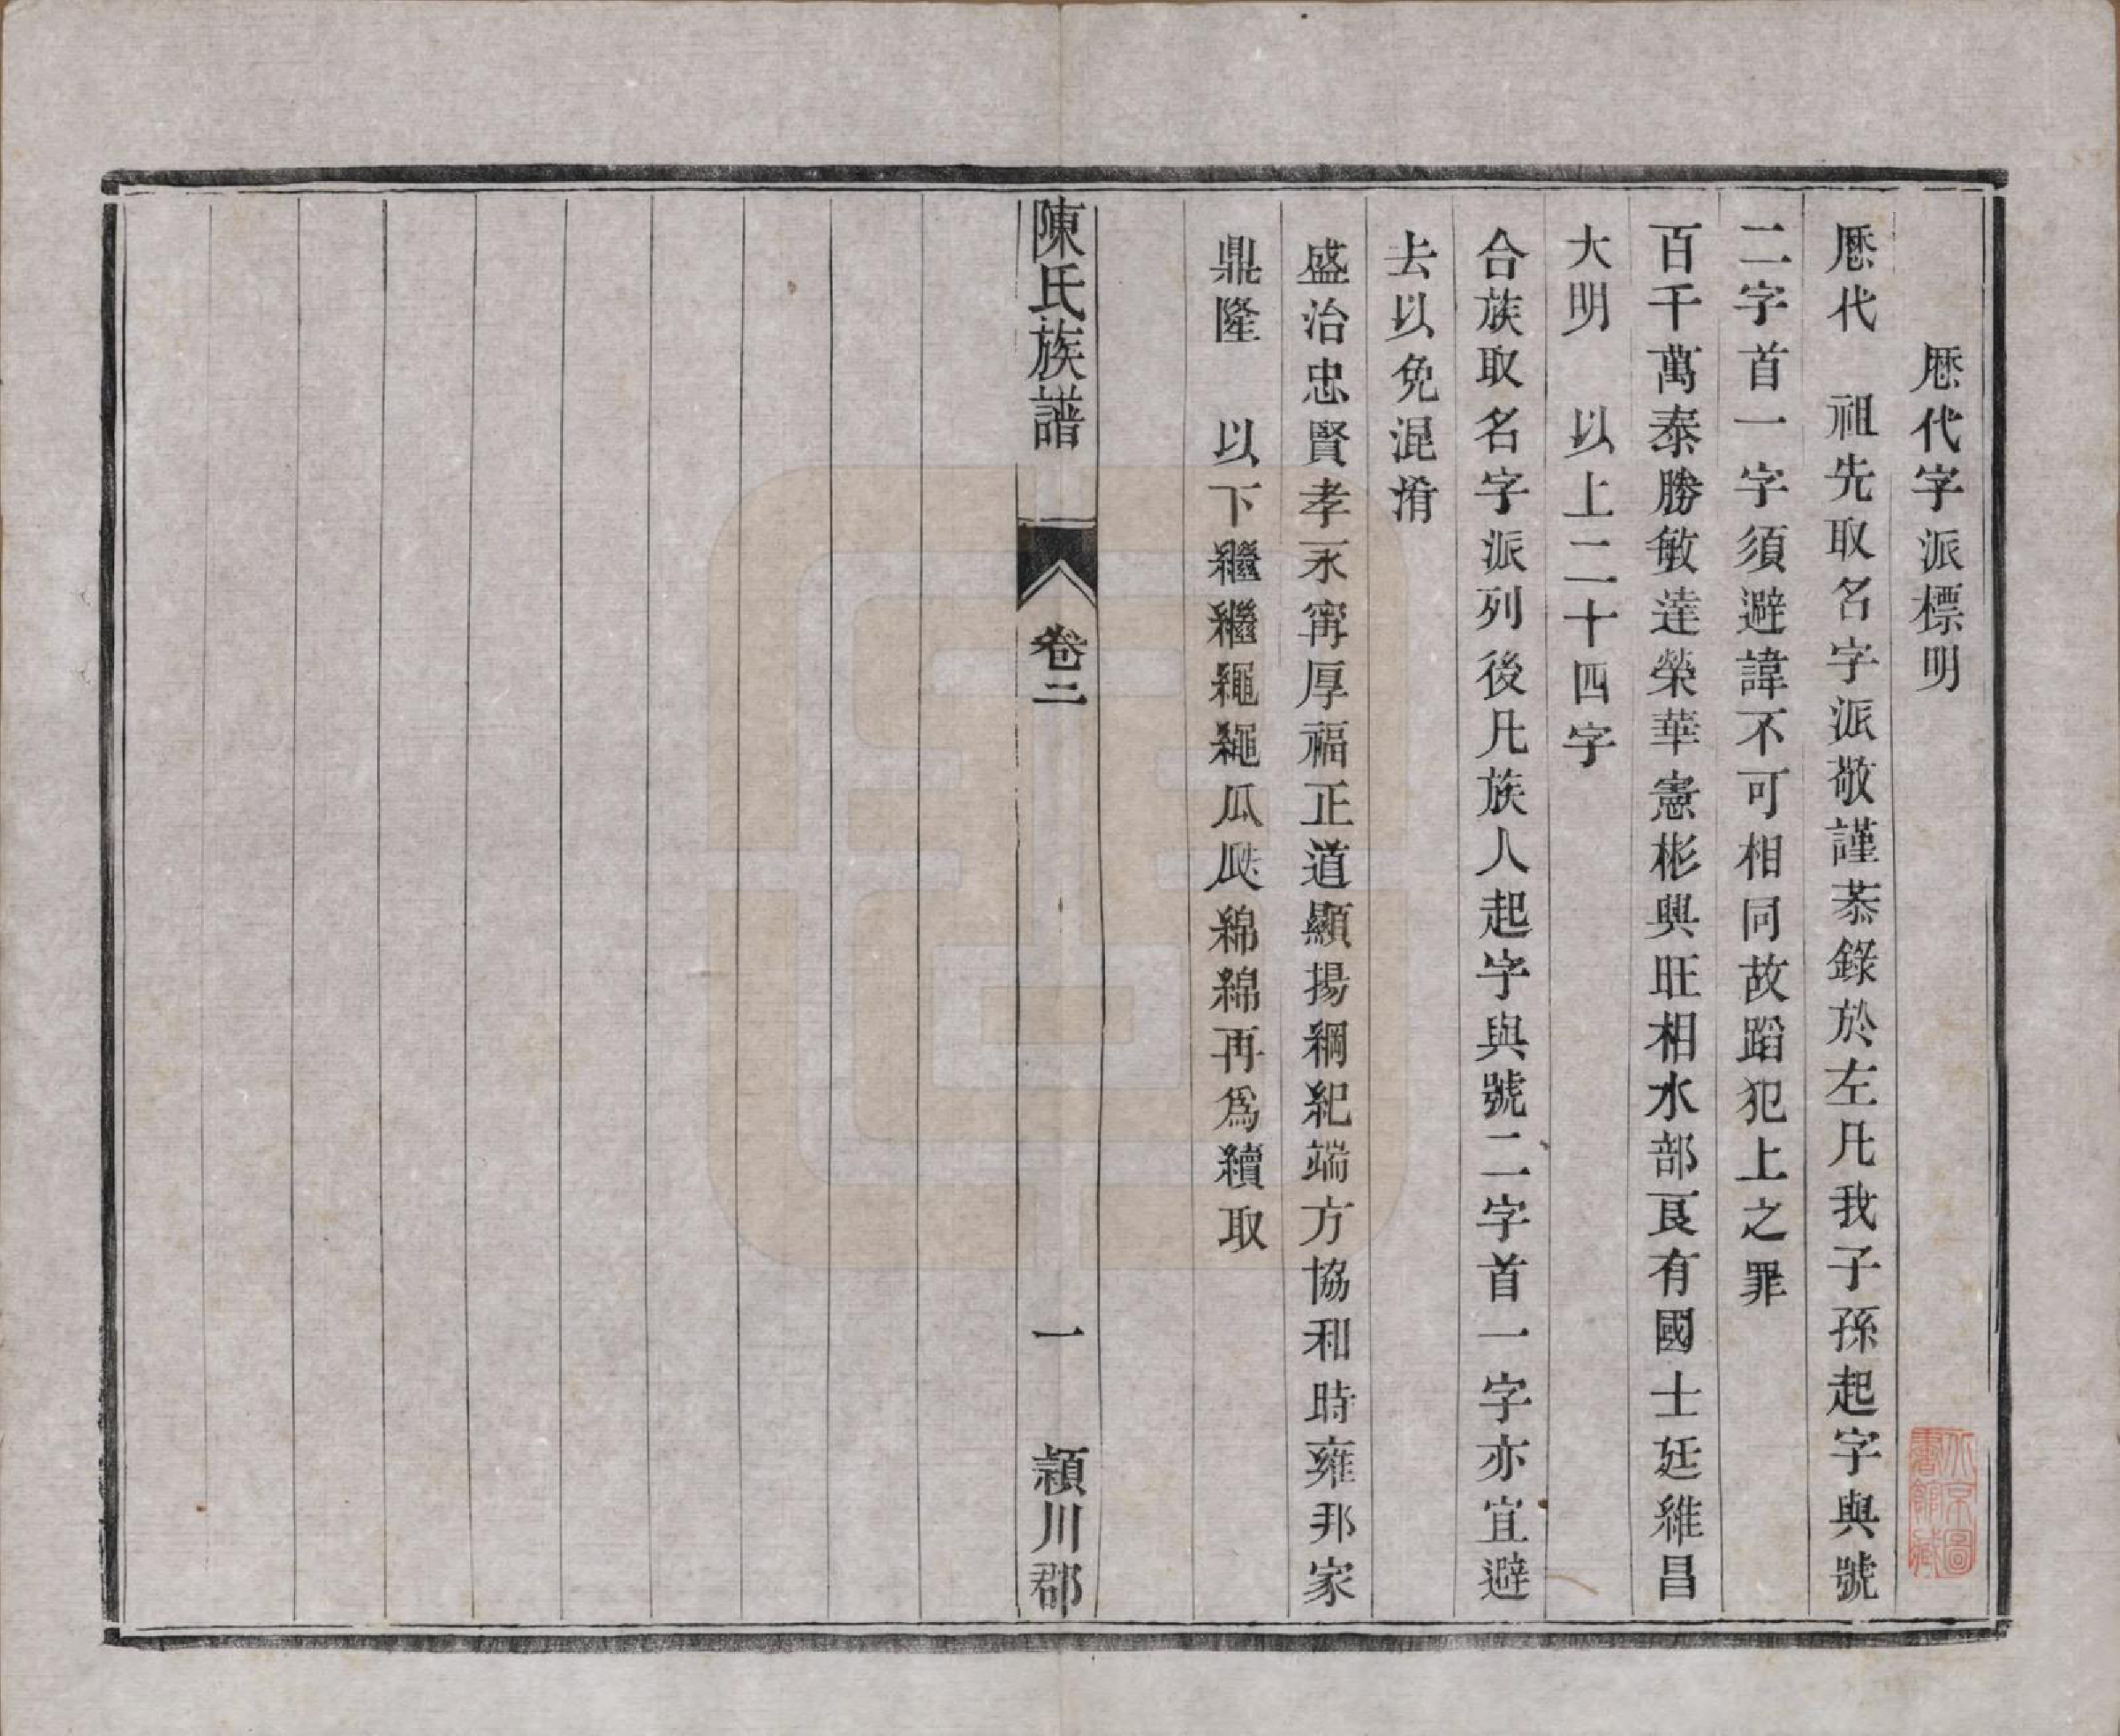 歷代字派標明
歷代　祖先取名字派敬謹恭錄於左凡我子孫起字與號
二字首一字須避諱不可相同故蹈犯上之罪
百千萬泰勝敏達榮華憲彬興旺相水部良有國士廷維昌
大明　以上二十四字
合族取名字派列後凡族人起字與號二字首一字亦宜避
去以免混淆
盛治忠賢孝永甯厚福正道顯揚綱紀端方協和時雍邦家
鼎隆　以下繼繼繩繩瓜瓞綿綿再爲續取
陳氏族譜
卷二
一
潁川郡
北京圖書館藏